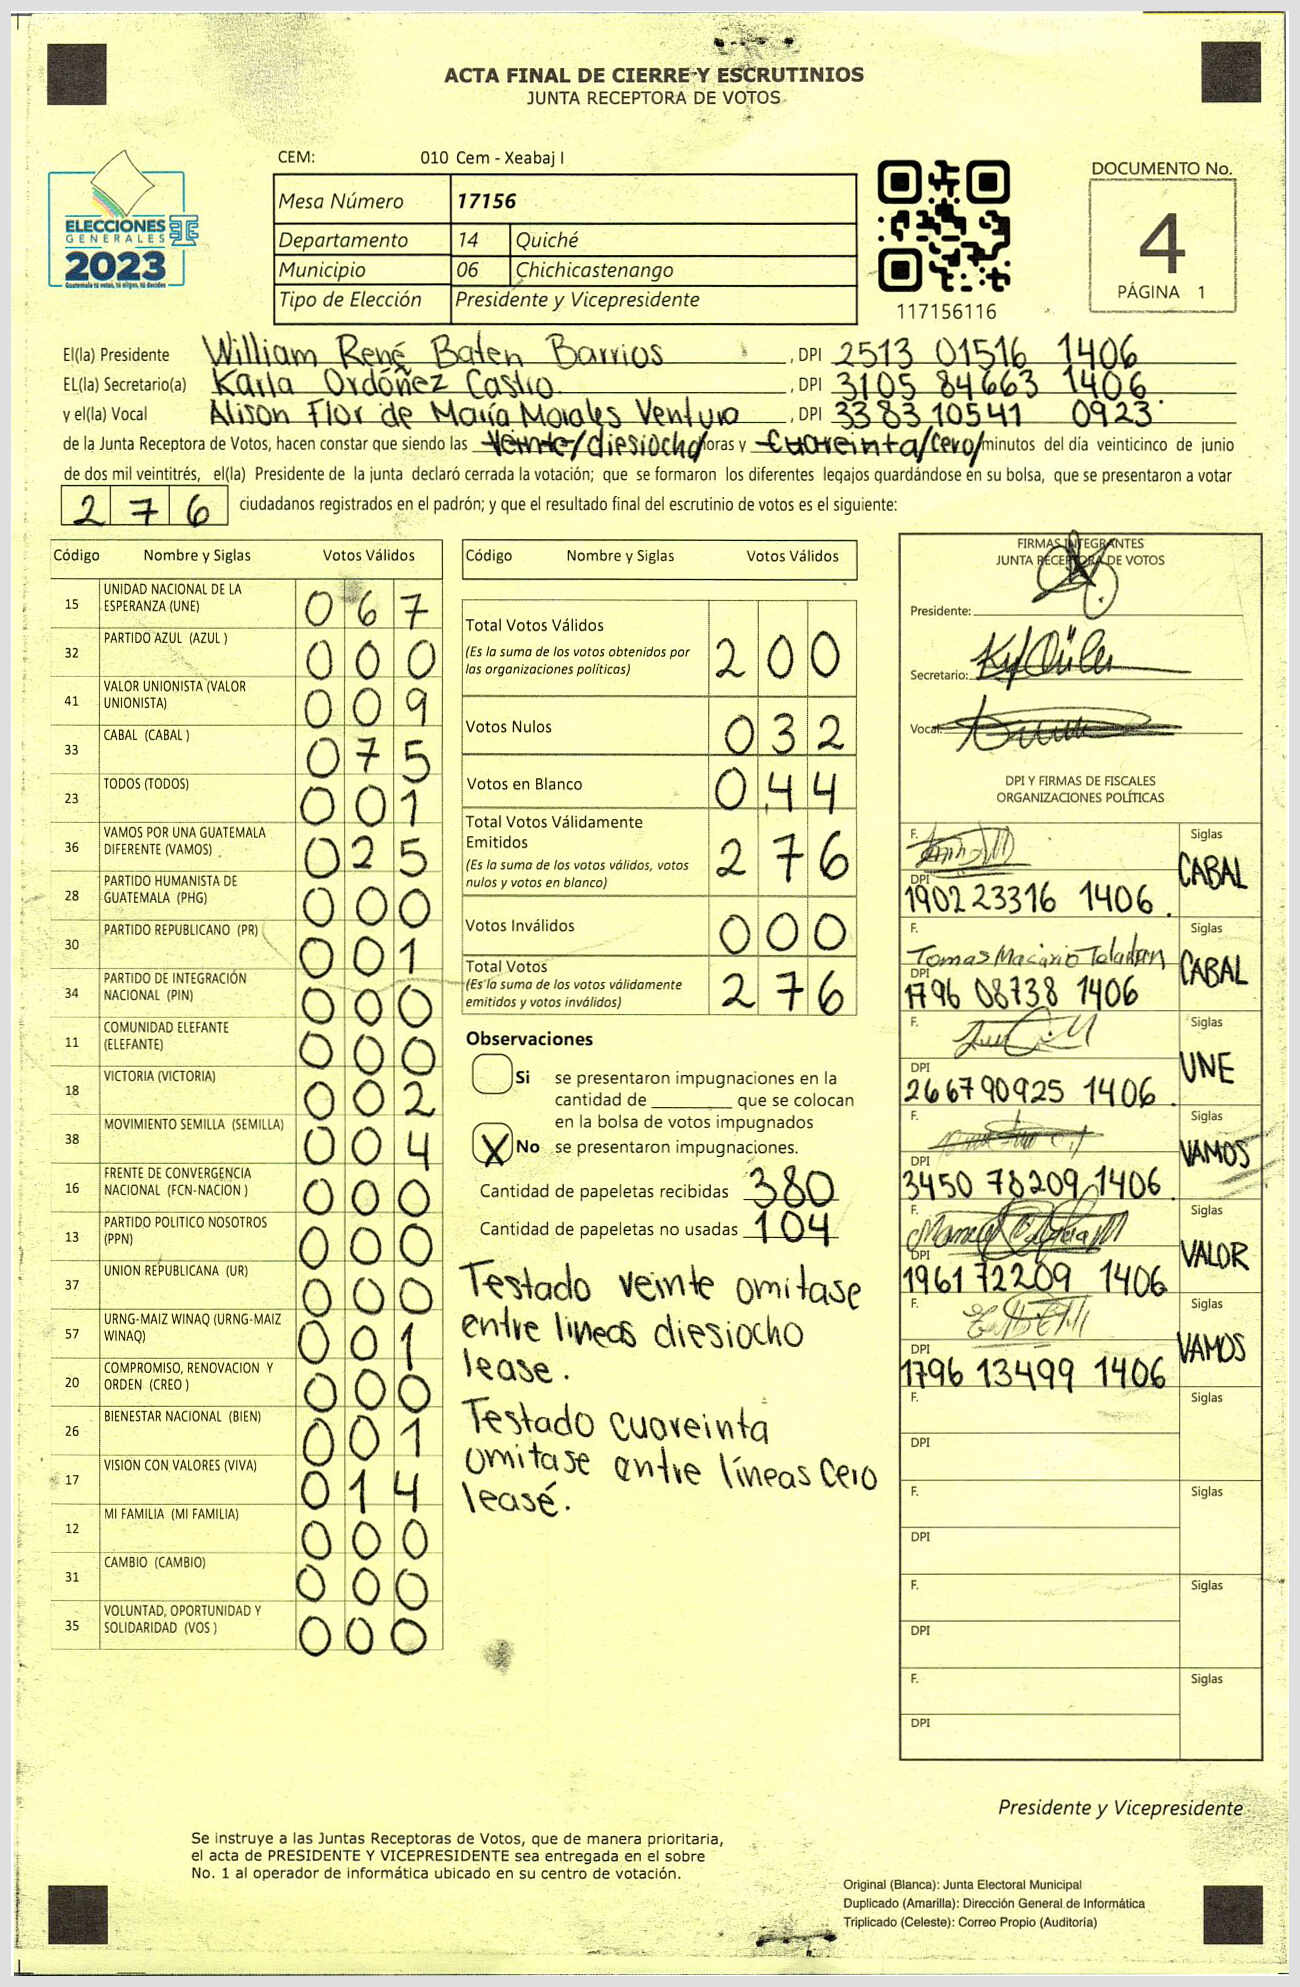 ACTA FINAL DE CIERRE Y ESCRUTINIOS
JUNTA RECEPTORA DE VOTOS
CEM: 010 Cem - Xeabaj I
ELECCIONES
GENERALES
2023
Guatemala tú votas, tú eliges, tú decides
Mesa Número 17156
Departamento 14 Quiché
Municipio 06 Chichicastenango
Tipo de Elección Presidente y Vicepresidente
117156116
DOCUMENTO No.
4
PÁGINA 1
El(la) Presidente William René Baten Barrios , DPI 2513 01516 1406
EL(la) Secretario(a) Karla Ordóñez Castro. , DPI 3105 84663 1406.
y el(la) Vocal Alison Flor de María Morales Ventura , DPI 3383 10541 0923.
de la Junta Receptora de Votos, hacen constar que siendo las veinte/diesiocho/horas y cuareinta/cero/minutos del día veinticinco de junio
de dos mil veintitrés, el(la) Presidente de la junta declaró cerrada la votación; que se formaron los diferentes legajos guardándose en su bolsa, que se presentaron a votar
276 ciudadanos registrados en el padrón; y que el resultado final del escrutinio de votos es el siguiente:
Código Nombre y Siglas Votos Válidos
15 UNIDAD NACIONAL DE LA
ESPERANZA (UNE) 067
32 PARTIDO AZUL (AZUL ) 000
41 VALOR UNIONISTA (VALOR
UNIONISTA) 009
33 CABAL (CABAL ) 075
23 TODOS (TODOS) 001
36 VAMOS POR UNA GUATEMALA
DIFERENTE (VAMOS) 025
28 PARTIDO HUMANISTA DE
GUATEMALA (PHG) 000
30 PARTIDO REPUBLICANO (PR) 001
34 PARTIDO DE INTEGRACIÓN
NACIONAL (PIN) 000
11 COMUNIDAD ELEFANTE
(ELEFANTE) 000
18 VICTORIA (VICTORIA) 002
38 MOVIMIENTO SEMILLA (SEMILLA) 004
16 FRENTE DE CONVERGENCIA
NACIONAL (FCN-NACION ) 000
13 PARTIDO POLITICO NOSOTROS
(PPN) 000
37 UNION REPUBLICANA (UR) 000
57 URNG-MAIZ WINAQ (URNG-MAIZ
WINAQ) 001
20 COMPROMISO, RENOVACION Y
ORDEN (CREO ) 000
26 BIENESTAR NACIONAL (BIEN) 001
17 VISION CON VALORES (VIVA) 014
12 MI FAMILIA (MI FAMILIA) 000
31 CAMBIO (CAMBIO) 000
35 VOLUNTAD, OPORTUNIDAD Y
SOLIDARIDAD (VOS ) 000
Código Nombre y Siglas Votos Válidos
Total Votos Válidos 200
(Es la suma de los votos obtenidos por
las organizaciones políticas)
Votos Nulos 032
Votos en Blanco 044
Total Votos Válidamente
Emitidos 276
(Es la suma de los votos válidos, votos
nulos y votos en blanco)
Votos Inválidos 000
Total Votos 276
(Es la suma de los votos válidamente
emitidos y votos inválidos)
Observaciones
Si se presentaron impugnaciones en la
cantidad de ________ que se colocan
en la bolsa de votos impugnados
X No se presentaron impugnaciones.
Cantidad de papeletas recibidas 380
Cantidad de papeletas no usadas 104
Testado veinte omitase
entre lineas diesiocho
lease.
Testado cuareinta
omitase entre líneas cero
leasé.
FIRMAS INTEGRANTES
JUNTA RECEPTORA DE VOTOS
Presidente:
Secretario:
Vocal:
DPI Y FIRMAS DE FISCALES
ORGANIZACIONES POLÍTICAS
F. Siglas
DPI CABAL
1902 23316 1406.
F. Siglas
Tomas Macario
DPI CABAL
1796 08738 1406
F. Siglas
DPI UNE
2667 90925 1406.
F. Siglas
DPI VAMOS
3450 78209 1406.
F. Siglas
DPI VALOR
1961 72209 1406
F. Siglas
DPI VAMOS
1796 13499 1406
F. Siglas
DPI
F. Siglas
DPI
F. Siglas
DPI
F. Siglas
DPI
Presidente y Vicepresidente
Se instruye a las Juntas Receptoras de Votos, que de manera prioritaria,
el acta de PRESIDENTE Y VICEPRESIDENTE sea entregada en el sobre
No. 1 al operador de informática ubicado en su centro de votación.
Original (Blanca): Junta Electoral Municipal
Duplicado (Amarilla): Dirección General de Informática
Triplicado (Celeste): Correo Propio (Auditoría)